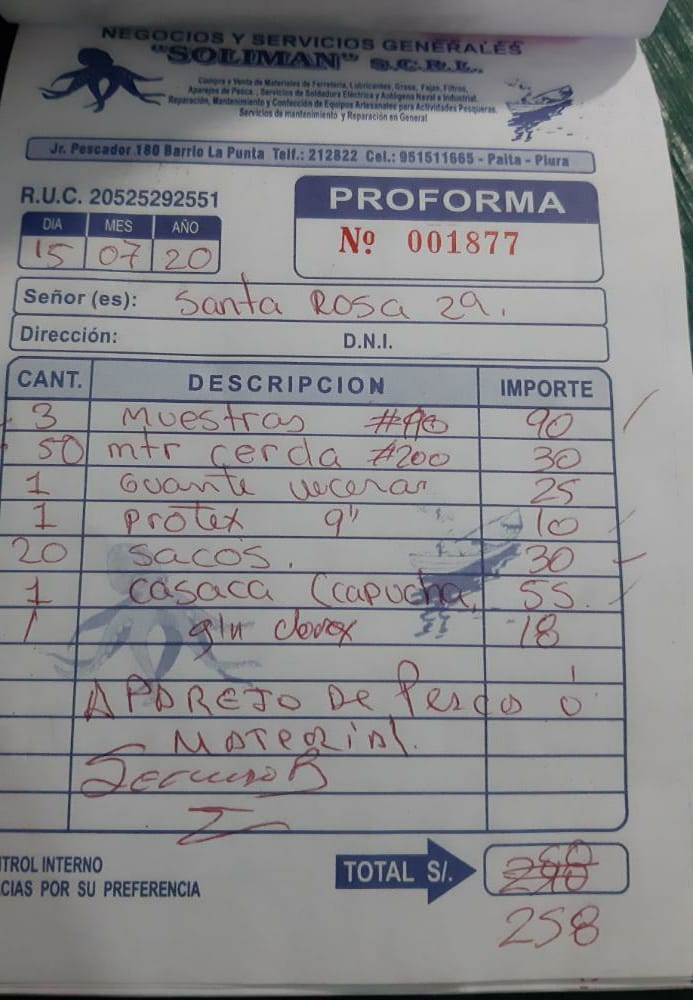 NEGOCIOS Y SERVICIOS GENERALES
"SOLIMAN" S.C.R.L.
Compra y Venta de Materiales de Ferretería, Lubricantes, Grasa, Fajas, Filtros,
Aparejos de Pesca.; Servicios de Soldadura Eléctrica y Autógena Naval e Industrial.
Reparación, Mantenimiento y Confección de Equipos Artesanales para Actividades Pesqueras.
Servicios de mantenimiento y Reparación en General
Jr. Pescador 180 Barrio La Punta Telf.: 212822 Cel.: 951511665 - Paita - Piura
R.U.C. 20525292551
PROFORMA
Nº 001877
DIA MES AÑO
15 07 20
Señor (es): Santa Rosa 29.
Dirección: D.N.I.
CANT. DESCRIPCION IMPORTE
3 Muestras 90
50 mtr cerda #200 30
1 Guante 25
1 Protex 9" 10
20 sacos. 30
1 casaca (capucha 55
1 gln clorox 18
APAREJO De Pesca o
MATERIAL
TROL INTERNO
CIAS POR SU PREFERENCIA
TOTAL S/.
258